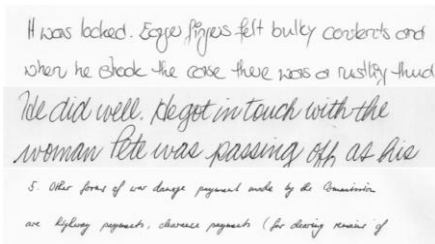 It was locked. Eager fingers felt bulky contents and
when he shook the case there was a rustling thud
He did well. He got in touch with the
woman Pete was passing off as his
5. Other forms of war damage payment made by the Commission
are highway payments, clearance payments (for clearing remains of